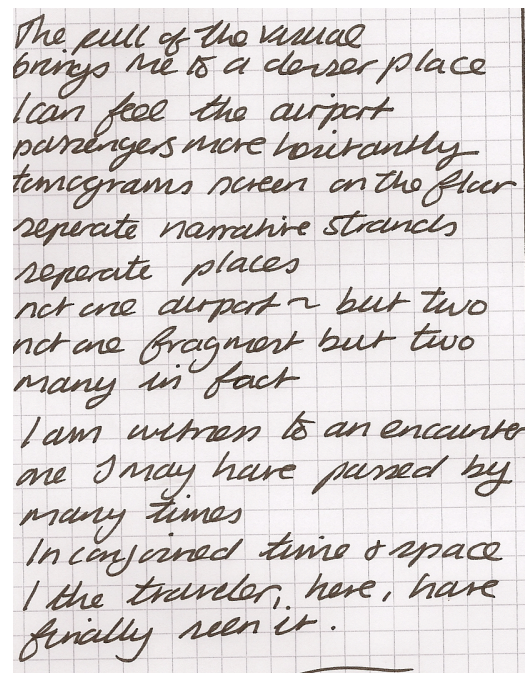 The pull of the visual
brings me to a denser place
I can feel the airport
passengers move hesitantly
tomograms screen on the floor
seperate narrative strands
seperate places
not one airport ~ but two
not one fragment but two
many in fact
I am witness to an encounter
one I may have passed by
many times
In conjoined time & space
I the traveler, here, have
finally seen it.